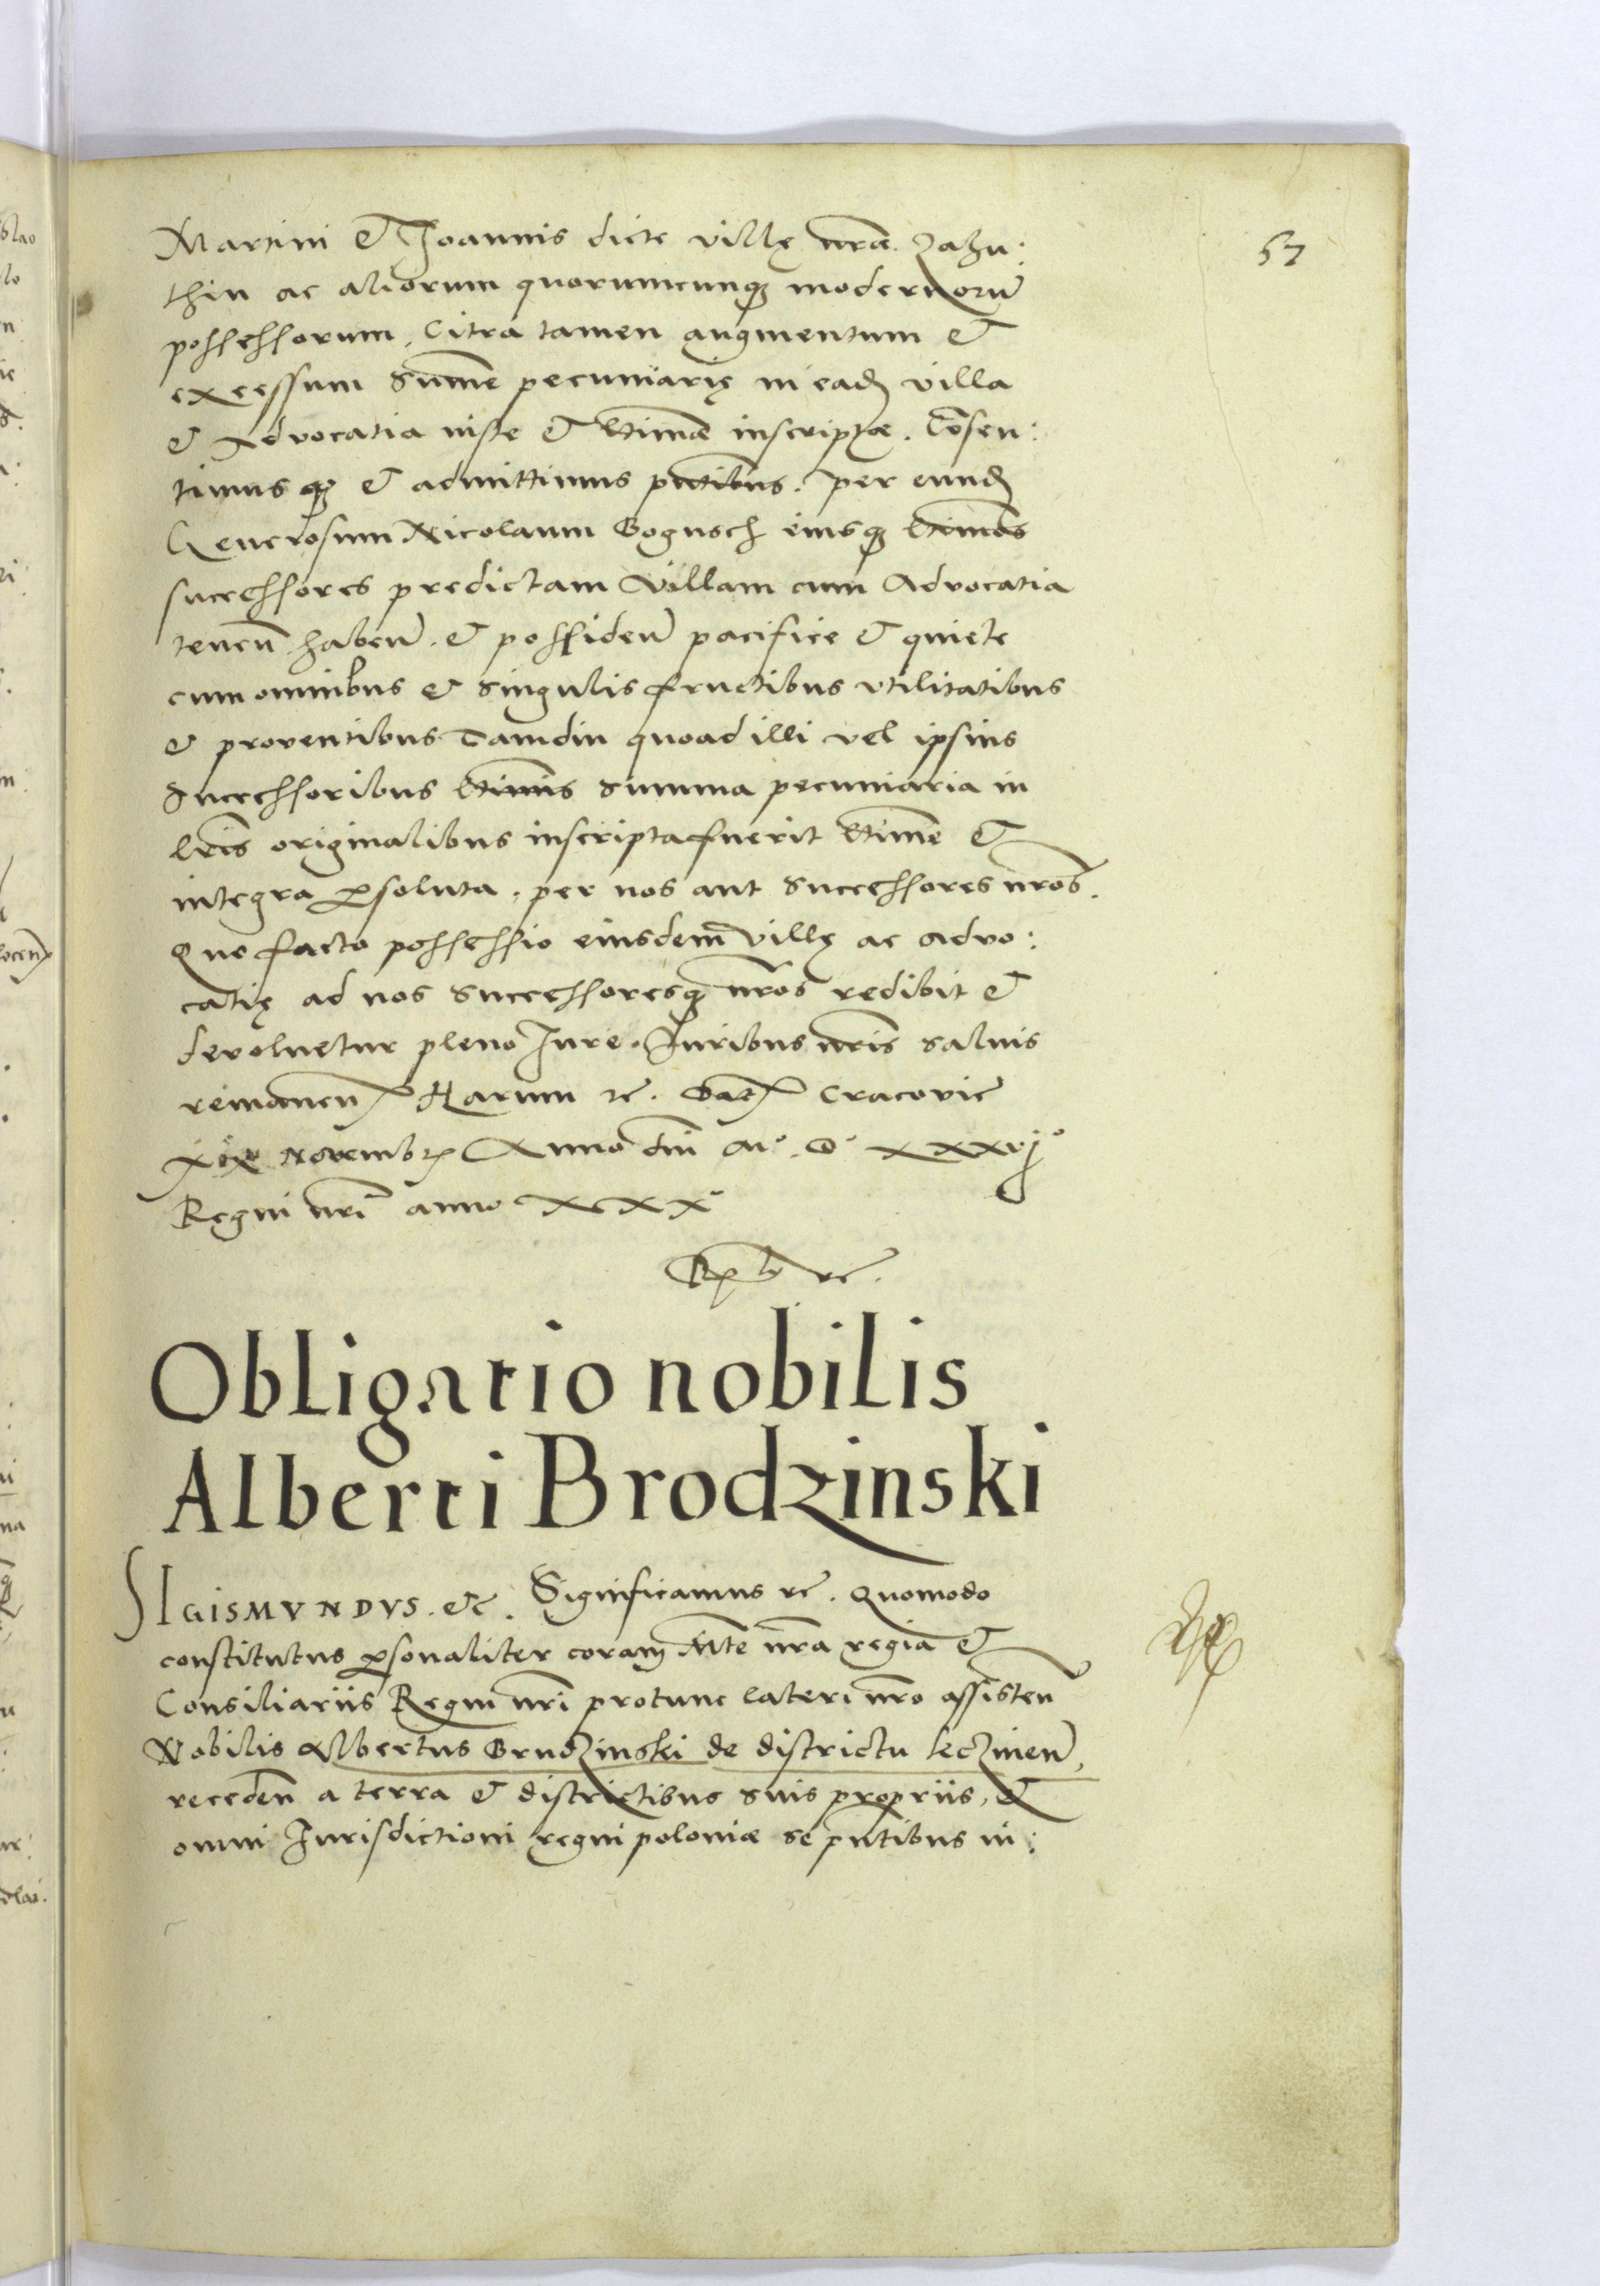 57
Martini & Joannis dicte villę nrae Zahu:
thin ac aliorum quorumcunqꝫ modernorū
possessorum, Citra tamen augmentum &
excessum Summe pecuniarię in eadꝫ villa
& Advocatia iuste & ltime inscriptæ. Cōsen:
timusqꝫ & admittimus pntibus. per eundꝫ
Generosum Nicolaum Bogusch eiusqꝫ ltimos
successores predictam Villam cum Advocatia
teneñ habeñ. & possideñ pacifice & quiete
cum omnibus & singulis fructibus vtilitatibus
& proventibus Tamdiu quoad illi vel ipsius
Successoribus ltimis summa pecuniaria in
lris originalibus inscripta fuerit ltime &
integra ꝑsoluta. per nos aut Successores nros.
Quo facto possessio eiusdem villę ac advo:
catię ad nos Successoresqꝫ nros redibit &
devoluetur pleno Iure. Iuribus nris saluis
remaneñ Harum ꝛc. Dat Cracovie
xix Novembr Anno dni Mo. Do xxxvjo
Regni nri anno xxxo
Obligatio nobilis
Alberti Brodzinski
SIGISMVNDVS. &c. Significamus ꝛc. Quomodo
constitutus ꝑsonaliter coram Mte nra regia &
Consiliariis Regni nri protunc lateri nro assisteñ
Nobilis Albertus Brudzinski de districtu leczicieñ,
recedeñ a terra & districtibus suis propriis, &
omni Iurisdictioni regni poloniæ se pntibus in: